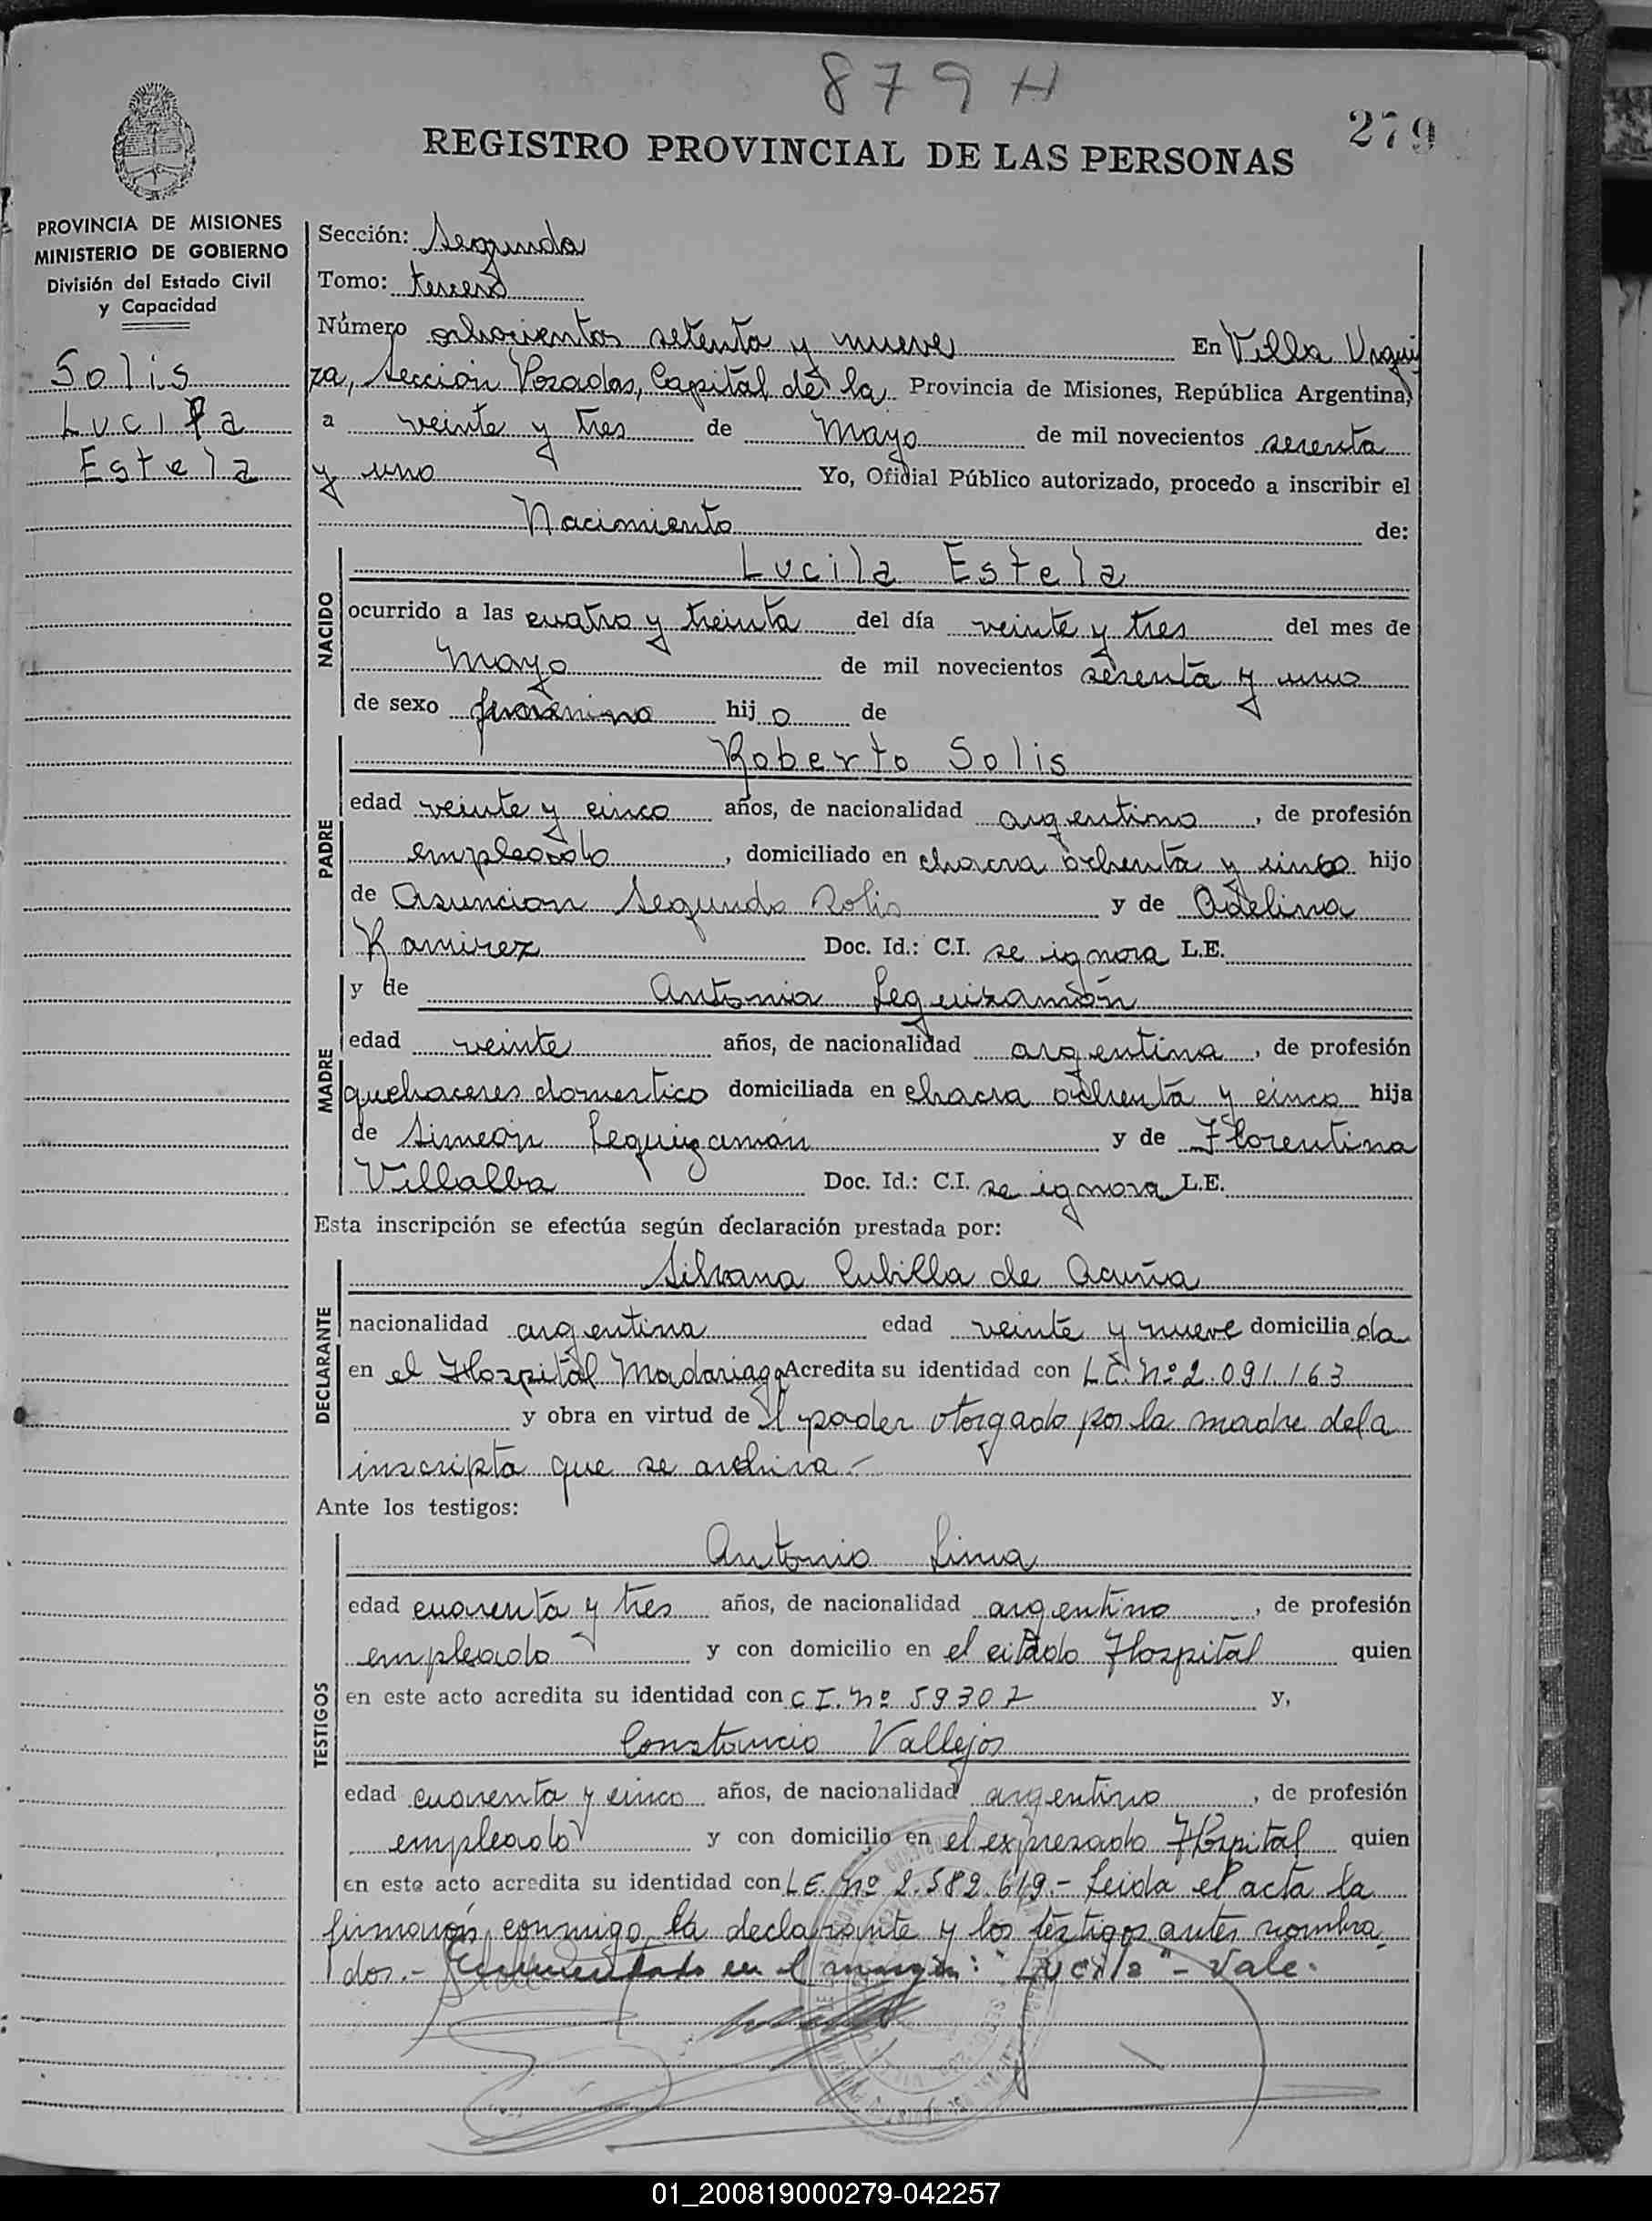 879 H
279
REGISTRO PROVINCIAL DE LAS PERSONAS
PROVINCIA DE MISIONES
MINISTERIO DE GOBIERNO
División del Estado Civil
y Capacidad
Solis
Lucila
Estela
Sección: Segunda
Tomo: tercero
Número ochocientos setenta y nueve En Villa Urqui
za, Sección Posadas, Capital de la Provincia de Misiones, República Argentina,
a veinte y tres de Mayo de mil novecientos sesenta
y uno Yo, Oficial Público autorizado, procedo a inscribir el
Nacimiento de:
NACIDO
Lucila Estela
ocurrido a las cuatro y treinta del día veinte y tres del mes de
mayo de mil novecientos sesenta y uno
de sexo femenino hij a de
PADRE
Roberto Solis
edad veinte y cinco años, de nacionalidad argentino, de profesión
empleado, domiciliado en chacra ochenta y cinco hijo
de Asuncion Segundo Solis y de Adelina
Ramirez Doc. Id.: C.I. se ignora L.E.
MADRE
y de Antonia Leguizamón
edad veinte años, de nacionalidad argentina, de profesión
quehaceres domestico domiciliada en chacra ochenta y cinco hija
de Simeón Leguizamón y de Florentina
Villalba Doc. Id.: C.I. se ignora L.E.
Esta inscripción se efectúa según declaración prestada por:
DECLARANTE
Silvana Cubilla de Acuña
nacionalidad argentina edad veinte y nueve domicilia da
en el Hospital Madariaga Acredita su identidad con L.C. Nº 2.091.163
y obra en virtud de l poder otorgado por la madre de la
inscripta que se archiva.-
Ante los testigos:
TESTIGOS
Antonio Lima
edad cuarenta y tres años, de nacionalidad argentino, de profesión
empleado y con domicilio en el citado Hospital quien
en este acto acredita su identidad con C.I. Nº 59307 y,
Constancio Vallejos
edad cuarenta y cinco años, de nacionalidad argentino, de profesión
empleado y con domicilio en el expresado Hospital quien
en este acto acredita su identidad con L.E. Nº 2.582.619.- Leida el acta la
firmarón conmigo, la declarante y los testigos antes nombra
dos.- Enmendado en el margen: "Lucila" - Vale.
01_200819000279-042257